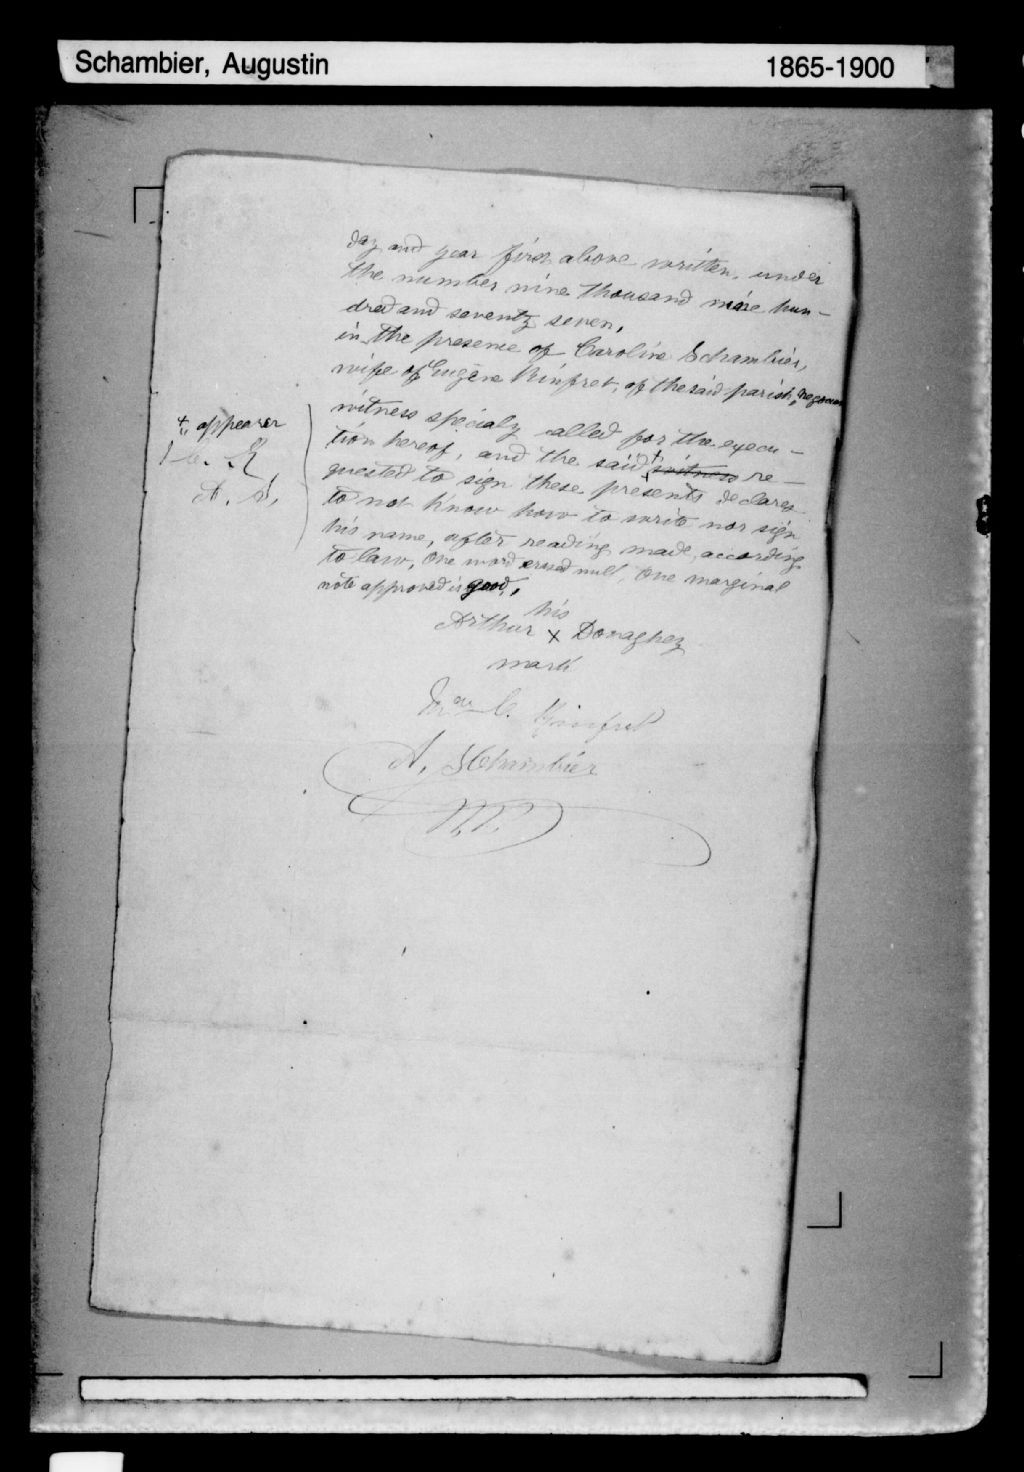 Schambier, Augustin 1865-1900
day and year first above written, under
the number nine thousand nine hun-
dred and seventy seven,
in the presence of Caroline Schambier,
wife of Eugène Rinfret, of the said parish,
witness specialy called for the execu-
tion hereof, and the said + witness re-
quested to sign these presents declares
to not know how to write nor sign
his name, after reading made, according
to law, One word erased null, One marginal
note approved is good,
+ appearer
A. S.
his
Arthur X Donaghey
mark
C. Rinfret
A. Schambier
N.P.